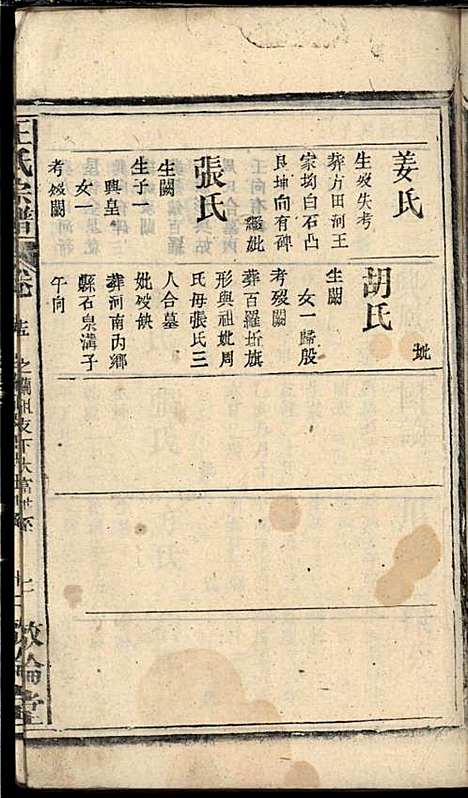 姜氏
生歿失考
葬方田河王
家㘭白石凸
艮坤向有碑
繼妣
張氏
生闕
生子一
興皇
女一
考歿闕
妣
胡氏
生闕
女一歸殷
考歿闕
葬百羅埓旗
形與祖妣周
氏毋張氏三
人合墓
妣歿缺
葬河南內鄉
縣石泉溝子
午向
王氏宗譜
卷
敦倫堂